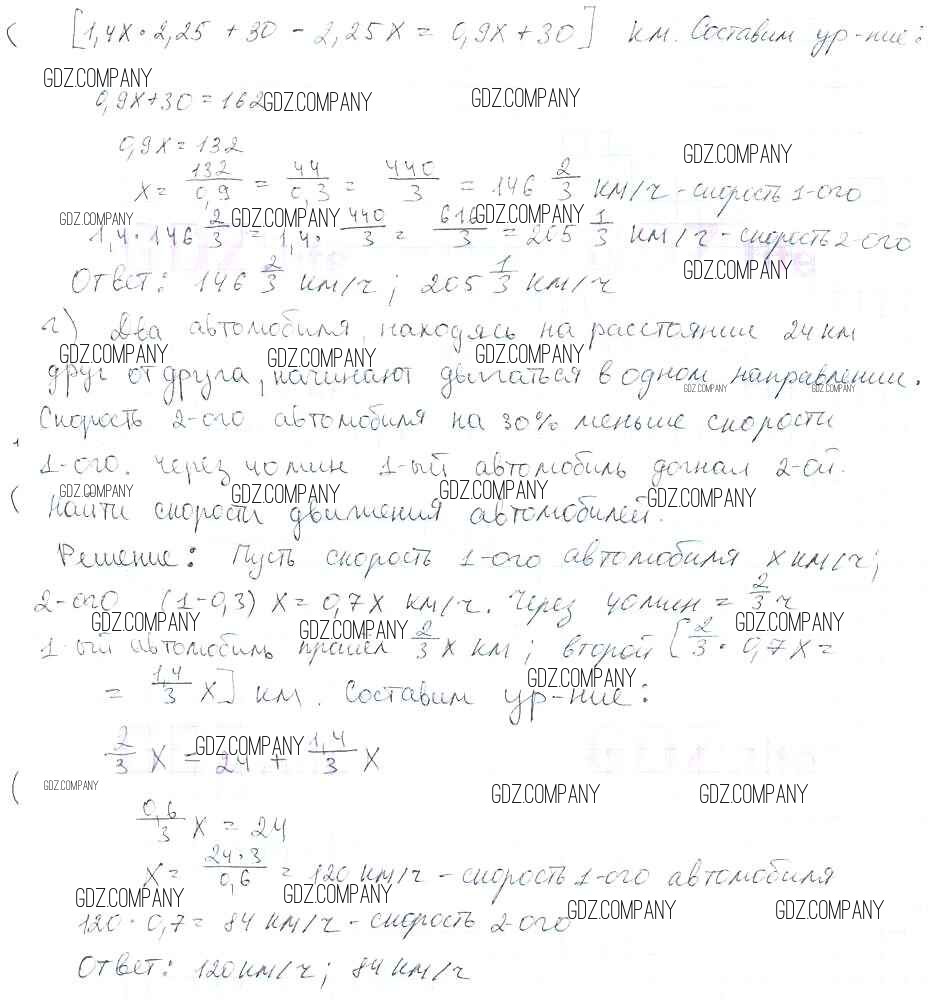 [1,4x·2,25 + 30 - 2,25x = 0,9x + 30] км. Составим ур-ние:
GDZ.COMPANY
0,9x+30 = 162 GDZ.COMPANY GDZ.COMPANY
0,9x = 132
GDZ.COMPANY
x = 132/0,9 = 44/0,3 = 440/3 = 146 2/3 км/ч - скорость 1-ого
GDZ.COMPANY GDZ.COMPANY GDZ.COMPANY
1,4·146 2/3 = 1,4· 440/3 = 616/3 = 205 1/3 км/ч - скорость 2-ого
GDZ.COMPANY
Ответ: 146 2/3 км/ч; 205 1/3 км/ч
г) Два автомобиля, находясь на расстоянии 24 км
GDZ.COMPANY GDZ.COMPANY GDZ.COMPANY
друг от друга, начинают двигаться в одном направлении.
GDZ.COMPANY GDZ.COMPANY
Скорость 2-ого автомобиля на 30% меньше скорости
1-ого. Через 40 мин 1-ый автомобиль догнал 2-ой.
GDZ.COMPANY GDZ.COMPANY GDZ.COMPANY GDZ.COMPANY
Найти скорости движения автомобилей.
Решение: Пусть скорость 1-ого автомобиля x км/ч;
2-ого (1-0,3) x = 0,7x км/ч. Через 40 мин = 2/3 ч
GDZ.COMPANY GDZ.COMPANY GDZ.COMPANY
1-ый автомобиль прошел 2/3 x км; второй [2/3 · 0,7x =
GDZ.COMPANY
= 1,4/3 x] км. Составим ур-ние:
2/3 x = 24 + 1,4/3 x
GDZ.COMPANY
GDZ.COMPANY GDZ.COMPANY GDZ.COMPANY
0,6/3 x = 24
x = 24·3/0,6 = 120 км/ч - скорость 1-ого автомобиля
GDZ.COMPANY GDZ.COMPANY GDZ.COMPANY GDZ.COMPANY
120 · 0,7 = 84 км/ч - скорость 2-ого
Ответ: 120 км/ч; 84 км/ч